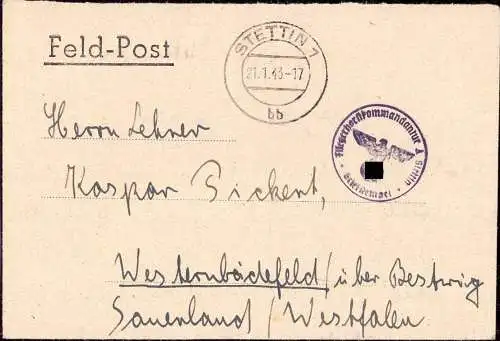 Feld-Post
STETTIN 1
21.1.43-17
bb
Fliegerhorstkommandantur A
Stettin
Briefstempel
Herrn Lehrer
Kaspar Pickert,
Westernbödefeld / über Bestwig
Sauerland / Westfalen